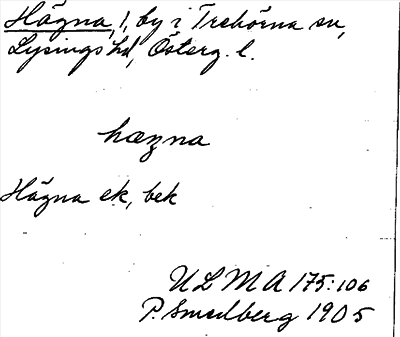 Hägna, 1, by i Trehörna sn,
Lysings hd, Österg. l.
hæʒna
Hägna ek, bek
ULMA 175:106
P. Smedberg 1905